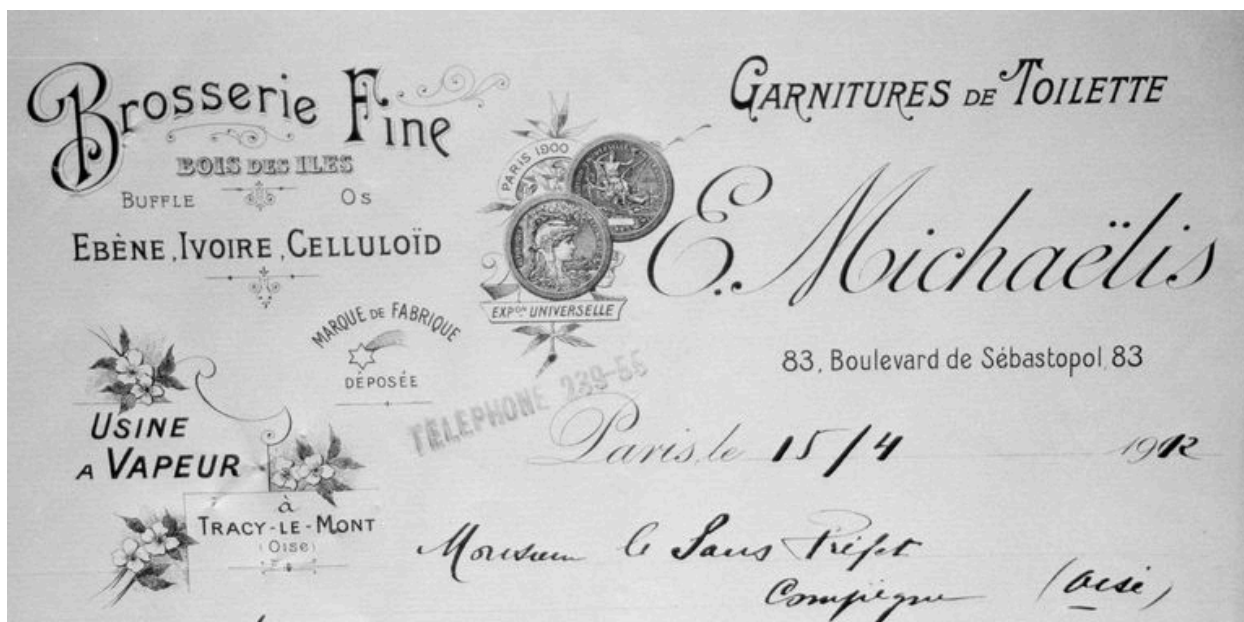 Brosserie Fine
BOIS DES ILES
BUFFLE OS
EBÈNE, IVOIRE, CELLULOÏD
MARQUE DE FABRIQUE
DÉPOSÉE
USINE
A VAPEUR
à
TRACY-LE-MONT
(OISE)
PARIS 1900
EXPON UNIVERSELLE
GARNITURES DE TOILETTE
E. Michaëlis
83, Boulevard de Sébastopol, 83
TELEPHONE 239-56
Paris, le 15/4 1912
Monsieur le Sous Préfet
Compiègne (Oise)